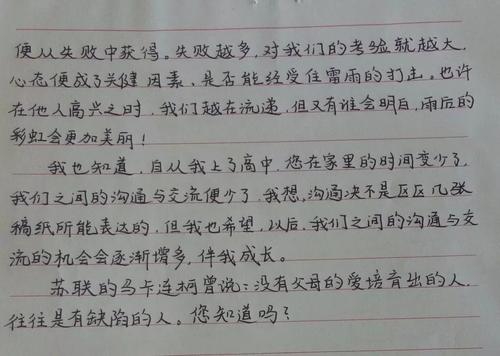 便从失败中获得。失败越多,对我们的考验就越大,
心态便成了关健因素、是否能经受住雷雨的打击。也许
在他人高兴之时,我们越在流递,但又有谁会明白,雨后的
彩虹会更加美丽!
我也知道,自从我上了高中,您在家里的时间变少了,
我们之间的沟通与交流便少了,我想,沟通决不是区区几张
稿纸所能表达的,但我也希望,以后,我们之间的沟通与交
流的机会会逐渐增多,伴我成长。
苏联的马卡连柯曾说:没有父母的爱培育出的人,
往往是有缺陷的人。您知道吗?